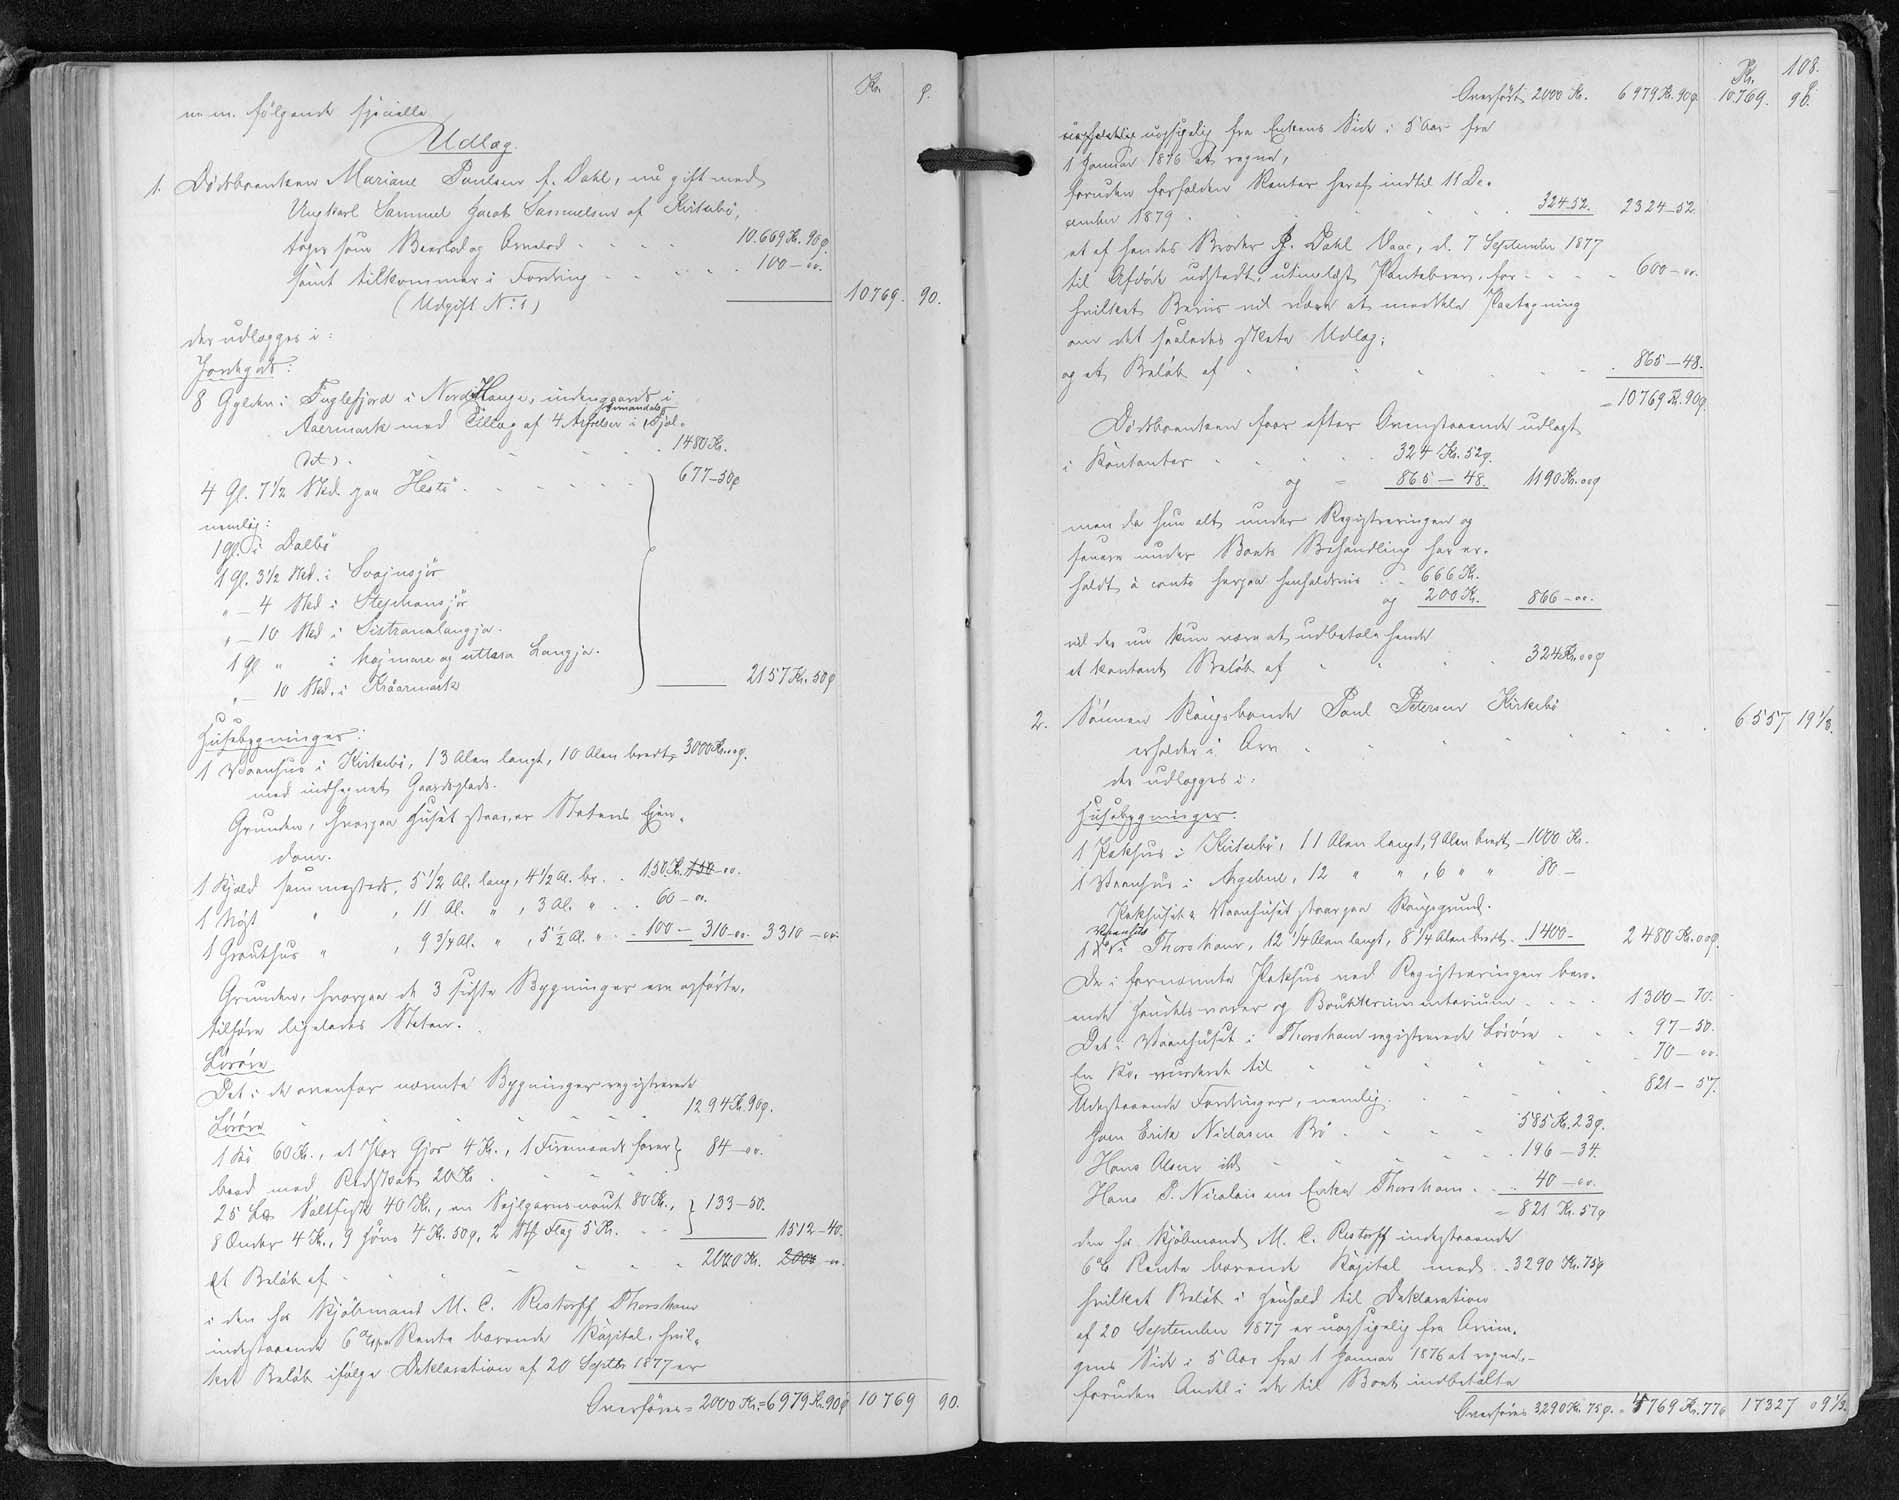 Kr. Ø.
m. m. følgende specielle
Udlæg.
1. Dødsboenken Mariane Poulsen f. Dahl, nu gift med
Ungkarl Samuel Jacob Samuelsen af Kirkebø,
tager som Boeslod og Arvelod - - - 10.669 Kr. 90 Ø.
samt tilkommer i Fordring - - - 100 – 00.
(Udgift No. 1) 10769. 90.
der udlægges i:
Jordegods:
8 Gylden i Fuglefjord i Nordi Houge, indengaards i
Aaermark med Tillæg af 4
1480 Kr.
4 Gl. 7 1/2 Sk. paa Hestø - - - 677–50 Ø
nemlig:
1 Gl. i Dalbø
1 Gl. 3 1/2 Sk. i
" – 4 Sk. i
" – 10 Sk. i
1 Gl. " i og uttara Langja.
" – 10 Sk. i
2157 Kr. 50 Ø
Husebygninger:
1 Vaanhus i Kirkebø, 13 Alen langt, 10 Alen bredt, 3000 Kr. 00 Ø.
med indhegnet Gaardsplads.
Grunden, hvorpaa Huset staar, er Statens Ejen-
dom.
1 Kjald sammesteds, 5 1/2 Al. lang, 4 1/2 Al. br. . 150 Kr. 150 – 00.
1 Nøst " , 11 Al. " , 3 Al. " . . 60 – 00.
1 Grouthus " , 9 3/4 Al. " , 5 1/2 Al. " . . 100 – 310 – 00 3310 – 00
Grunden, hvorpaa de 3 sidste Bygninger ere opførte,
tilhøre ligeledes Staten.
Løsøre
Det i de ovenfor nævnte Bygninger registrerede
Løsøre - - - 1294 Kr. 90 Ø.
1 Ko 60 Kr., et Par 4 Kr., 1 Firemands
baad med Redskab 20 Kr. 84 – 00.
25 Saltfisk 40 Kr., en 80 Kr.,
8 Ænder 4 Kr., 9 Høns 4 Kr. 50 Ø, 2 5 Kr. 133 – 50. 1512 – 40.
Et Beløb af - - - 2000 Kr. 2000 00.
i den hos Kjøbmand M. C. Restorff Thorshavn
indestaaende 6 % Rente bærende Kapital, hvil-
ket Beløb ifølge Deklaration af 20 Septbr. 1877 er
Overføres = 2000 Kr. = 6979 Kr. 90 Ø 10769 90.
108.
Kr. Ø.
Overført 2000 Kr. 6979 Kr. 90 Ø 10769. 90.
uopsigelig fra Enkens Side i 5 Aar fra
1 Januar 1876 at regne,
foruden forfaldne Renter heraf indtil 11 De-
cember 1879 . . . 324–52. 2324–52.
et af hendes Broder P. Dahl Vaag, d. 7 September 1877
til Afdøde udstedt, Pantebrev, for - - - 600 – 00.
hvilket Bevis vil være at meddele Paategning
om det saaledes skete Udlæg;
og et Beløb af - - - 865 – 48.
= 10769 Kr. 90 Ø.
Dødsboenken faar efter Ovenstaaende udlagt
i Kontanter - - - 324 Kr. 52 Ø.
og = 865 – 48. 1190 Kr. 00 Ø
men da hun alt under Registreringen og
senere under Boets Behandling har er-
holdt à conto herpaa henholdsvis . . 666 Kr.
og 200 Kr. 866 – 00.
vil der nu kun være at udbetale hende
et kontant Beløb af - - - 324 Kr. 00 Ø
2. Sønnen Kongsbonde Poul Petersen Kirkebø
erholder i Arv . . . 6557 19 1/3.
der udlægges i:
Husebygninger.
1 Pakhus i Kirkebø, 11 Alen langt, 9 Alen bredt – 1000 Kr.
1 Vaanhus i , 12 " " , 6 " " 80 –
Pakhuset & Vaanhuset staar paa Kongsgrund.
Vaanhus
1 Do i Thorshavn, 12 1/4 Alen langt, 8 1/4 Alen bredt . 1400 – 2480 Kr. 00 Ø.
De i fornævnte Pakhus ved Registreringen bero-
ende Handelsvarer og Boutikinventarium . . . . 1300 – 70.
Det i Vaanhuset i Thorshavn registrerede Løsøre - - 97 – 50.
En Ko, vurderet til - - - 70 – 00.
Udestaaende Fordringer, nemlig - - - 821 – 57.
Hos Erik Niclasen Bø - - - 585 Kr. 23 Ø.
Hans Olsen ibd. - - - 196 – 34.
Hans P. Nicolaisens Enke Thorshavn . . 40 – 00.
= 821 Kr. 57 Ø
den hos Kjøbmand M. C. Restorff indestaaende
6 % Rente bærende Kapital med . 3290 Kr. 75 Ø
hvilket Beløb i Henhold til Deklaration
af 20 September 1877 er uopsigelig fra Arvin-
gens Side i 5 Aar fra 1 Januar 1876 at regne, –
foruden Andel i de til Boet indbetalte
Overføres 3290 Kr. 75 Ø. = 4769 Kr. 77 Ø 17327 09 1/3.